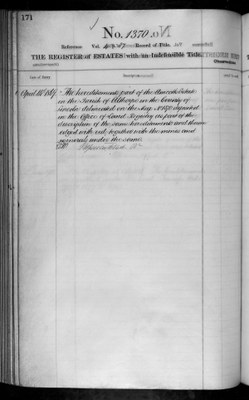 171
No. 1370.
Reference Vol. Record of Title.
THE REGISTER of ESTATES with an Indefeasible Title.
Date of Entry
April 10th 1867 The hereditaments part of the Estate
in the Parish of Althorpe in the County of
Lincoln delineated on the Map No 1370 deposited
in the Office of Land Registry as part of the
description of the same hereditaments and thereon
edged with red, together with the mines and
minerals under the same.